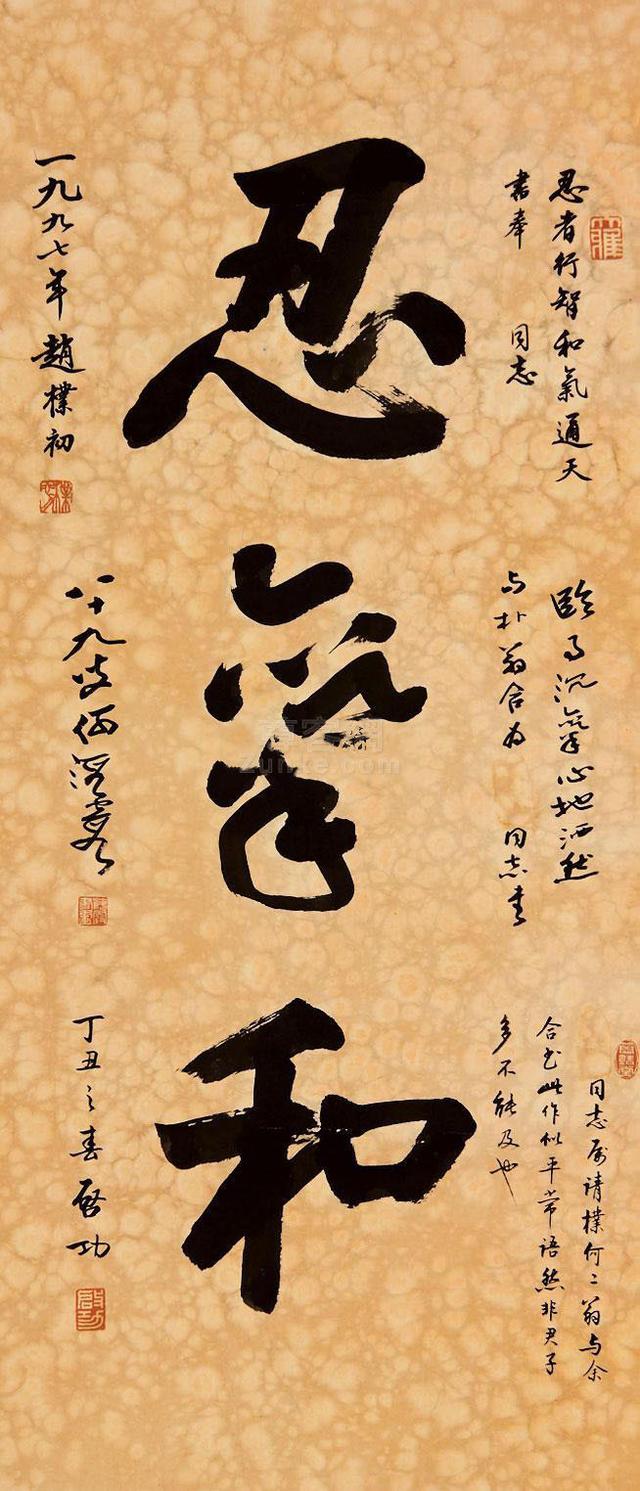 忍
忍者行智和氣通天
書奉
同志
一九九七年 趙樸初
氣
臨事沉氣心地洒然
与朴翁合为
同志書
八十九叟何海霞
和
同志属请樸何二翁与余
合书此作似平常语然非君子
多不能及也
丁丑之春 啓功
啓功
Zunke.com